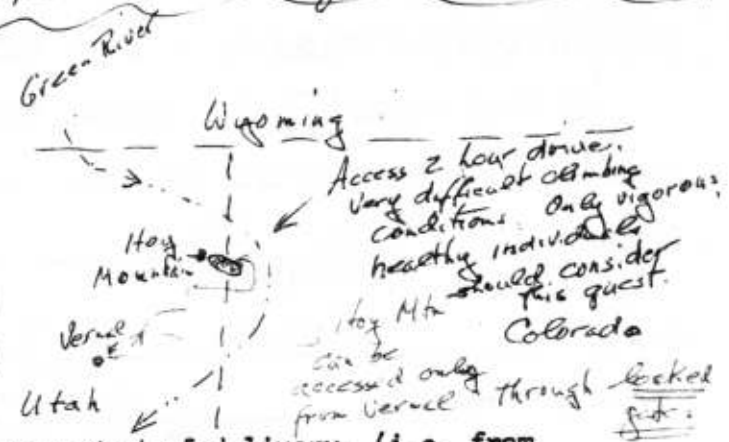 Green River
Wyoming
Access 2 hour drive.
Very difficult climbing
conditions. Only vigorous,
healthy individuals
should consider
this quest.
Hoy
Mountain
Hoy Mtn
can be
accessed only
from Vernal through locked
gate.
Colorado
Vernal
Utah
(i.e. from